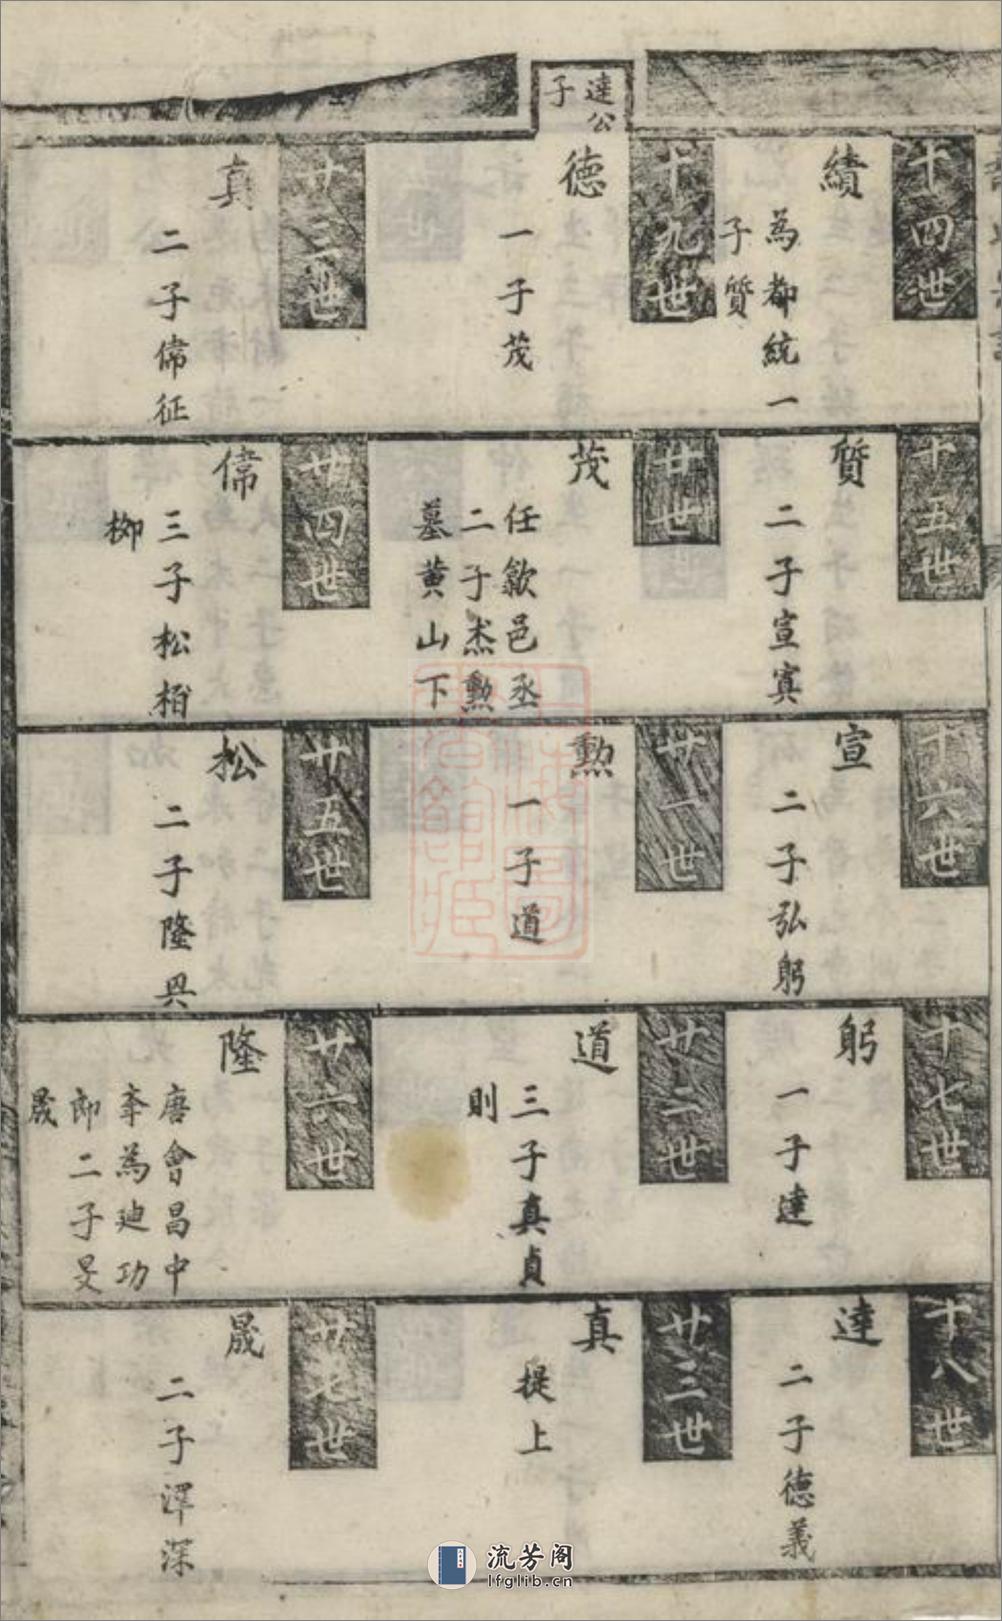 十四世
績
為都統一
子質
十五世
質
二子宣寘
十六世
宣
二子弘躬
十七世
躬
一子達
十八世
達
二子德義
達公
子
十九世
德
一子茂
廿世
茂
任歙邑丞
二子杰勲
墓黄山下
廿一世
勲
一子道
廿二世
道
三子真貞
則
廿三世
真
提上
廿三世
真
二子儒征
廿四世
儒
三子松栢
柳
廿五世
松
二子隆興
廿六世
隆
唐會昌中
為廸功
郎二子旻
晟
廿七世
晟
二子澤深
流芳阁
lfglib.cn